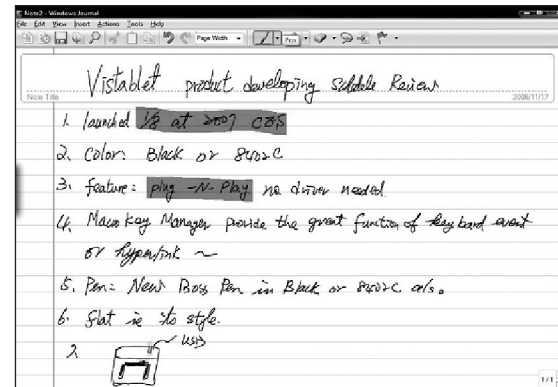 Note2 - Windows Journal
File Edit View Insert Actions Tools Help
Page Width
Pen
Vistablet product developing Review
Note Title
2006/11/17
1. launched 1/8 at 2007 CES
2. Color: Black or 8402C
3. feature: plug-N-Play no driver needed
4. Macro Key Manager provide the great function of keyboard event
or hyperlink ~
5. Pen: New Boss Pen in Black or 8402C also.
6. flat is its style.
USB
1/1